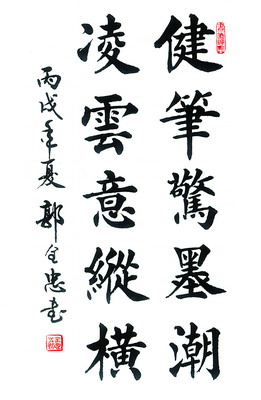 健筆驚墨潮
凌雲意縱橫
丙戌年夏郭全忠书